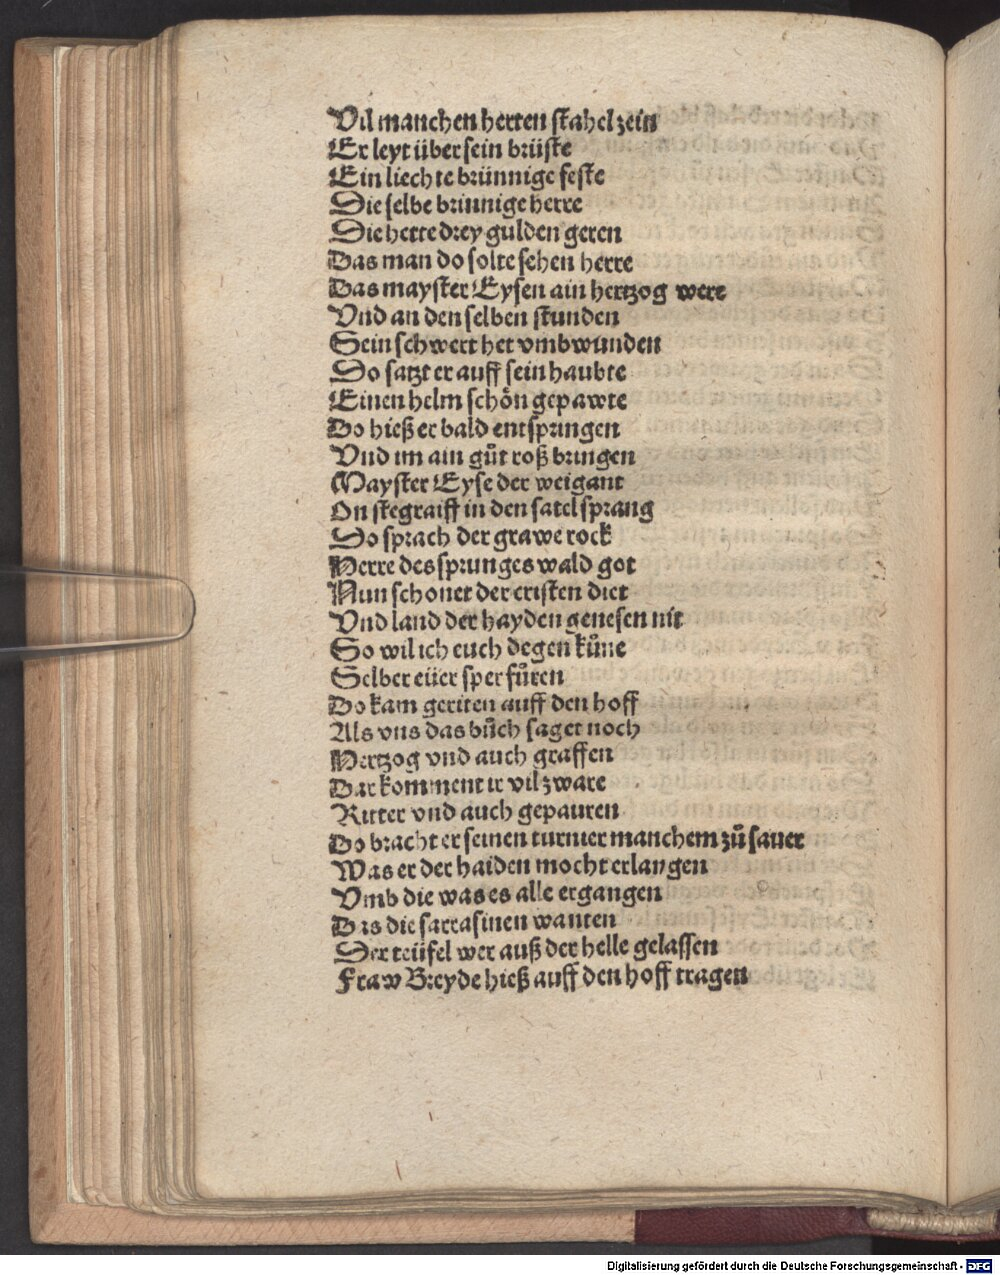 Vil manchen herten stahel zein
Er leyt über sein brüste
Ein liechte brünnige feste
Die selbe brinnige herre
Die hette drey gulden geren
Das man do solte sehen herre
Das mayster Eysen ain hertzog were
Vnd an den selben stunden
Sein schwert het vmbwunden
Do satzt er auff sein haubte
Einen helm schön gepawte
Do hieß er bald entspringen
Vnd im ain gůt roß bringen
Mayster Eyse der weigant
On stegraiff in den satel sprang
Do sprach der grawe rock
Herre des sprunges wald got
Nun schonet der cristen diet
Vnd land der hayden genesen nit
So wil ich euch degen kůne
Selber eüer sper fůren
Do kam geriten auff den hoff
Als vns das bůch saget noch
Hertzog vnd auch graffen
Dar komment ir vil zware
Ritter vnd auch gepauren
Do bracht er seinen turnier manchem zů sauer
Was er der haiden mocht erlangen
Vmb die was es alle ergangen
Das die sarrasinen wanten
Der teüfel wer auß der helle gelassen
Fraw Breyde hieß auff den hoff tragen
Digitalisierung gefördert durch die Deutsche Forschungsgemeinschaft - DFG